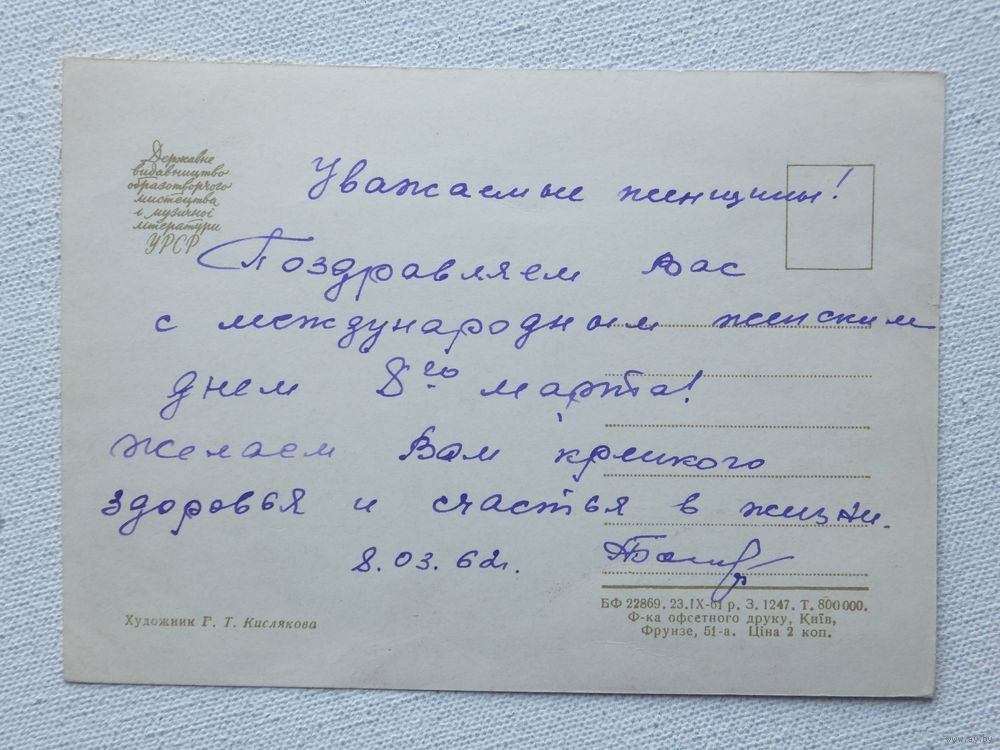 Державне
видавництво
образотворчого
мистецтва
і музичної
літератури
УРСР
Уважаемые женщины!
Поздравляем Вас
с международным женским
днем 8го марта!
желаем Вам крепкого
здоровья и счастья в жизни.
8.03.62г.
БФ 22869. 23.IX-61 р. З. 1247. Т. 800 000.
Ф-ка офсетного друку, Київ,
Фрунзе, 51-а. Ціна 2 коп.
Художник Г. Т. Кислякова
www.ay.by